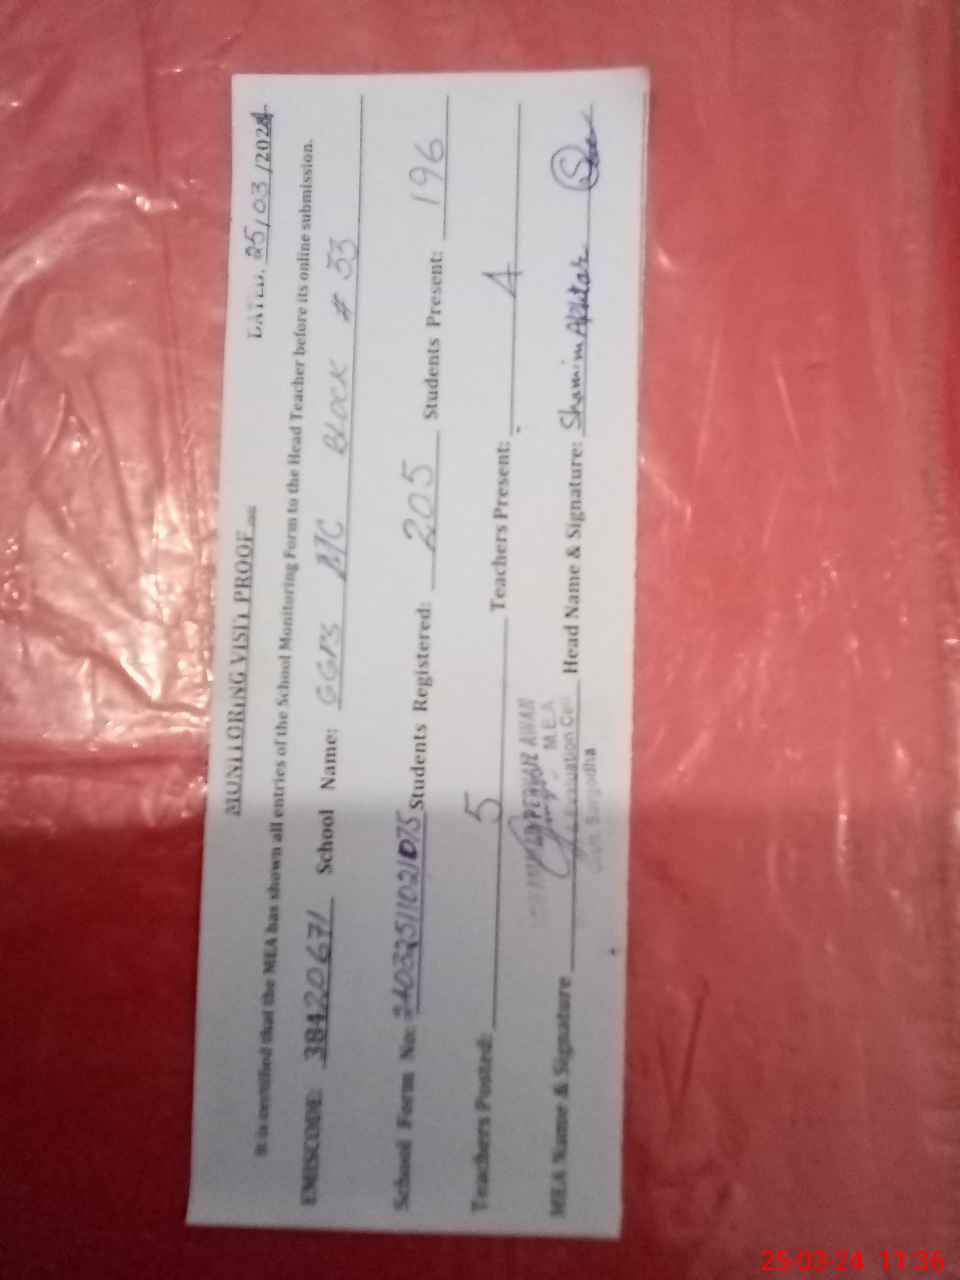 MONITORING VISIT PROOF
DATED: 25/03/2024
It is certified that the MEA has shown all entries of the School Monitoring Form to the Head Teacher before its online submission.
EMISCODE: 38420671 School Name: GGPS MC BLOCK # 33
School Form No: 24032511021075 Students Registered: 205 Students Present: 196
Teachers Posted: 5 Teachers Present: 4
MEA Name & Signature Head Name & Signature: Shamim Akhtar
AWAN
M.E.A
Evaluation Cell
Sargodha
25-03-24 11:36